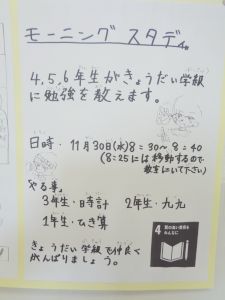 モーニングスタデ
4,5,6年生がきょうだい学級
に勉強を教えます。
日時・11月30日(水)8:30~8:40
(8:25には移動するので
教室にいて下さい)
やる事
3年生・日時計 2年生・九九
1年生・ひき算
きょうだい学級で仲良く
がんばりましょう。
4 質の高い教育を
みんなに